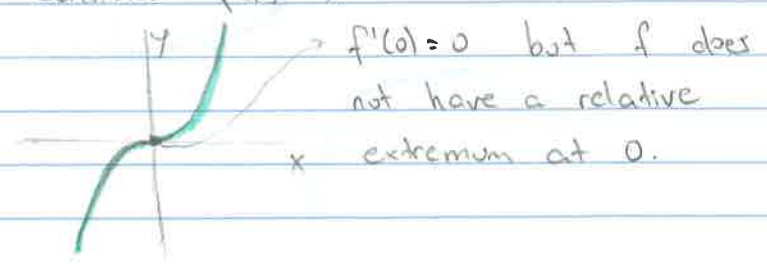 y
f'(0) = 0 but f does
not have a relative
x extremum at 0.